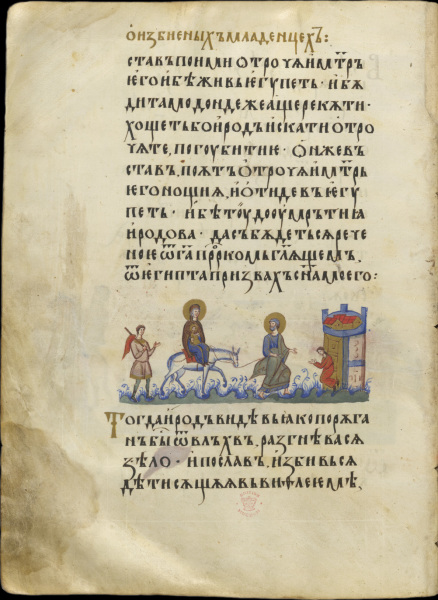 ѡ҆и҆збїеных̾ъмладенцех̾ъ:
ставъпоимиотроѧи҆мт҃рь
ѥгои҆бѣживьѥгѵпеть· и҆бѫ
дитамодондежеащерекѫти·
хощетьбои҆родъи҆скатиотро
ѧте, погоубитиѥ· ѡ҆нжевъ
ставъ, поѧтъотроѧи҆мт҃рь
ѥгонощиѫ, и҆ѿидевъѥгѵ
петь· и҆бѣтоудооумрьтиꙗ
и҆родова· дасъбѫдетьсѧрече
ноѥѿг҃апр҃ркомьгл҃ѧщемъ,
ѿегѵптапризвахъсн҃амоего:
Тогдаи҆родъвидѣвьꙗкопорѫга
нъбыѿвлъхвъ, разгнѣвасѧ
ѕѣло· и҆пославъ, и҆збивьсѧ
дѣтисѫщѫѧвьвиѳлеѥмѣ,